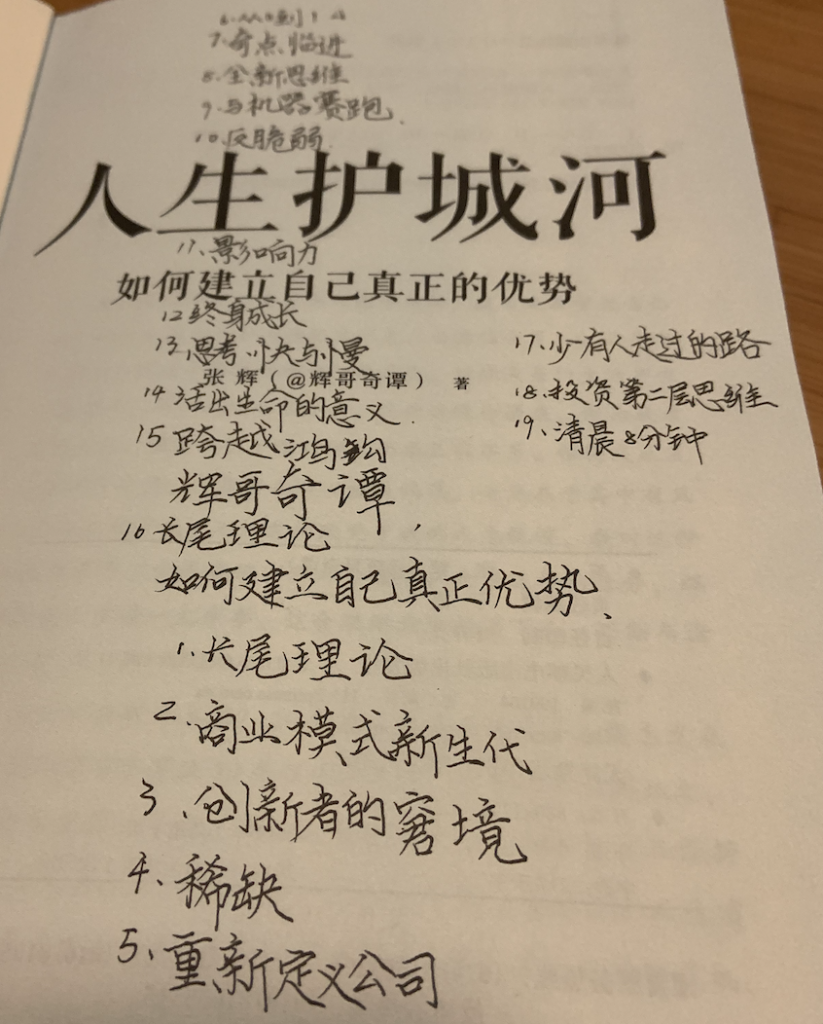 6、从0到1
7、奇点临进
8、全新思维
9、与机器赛跑.
10、反脆弱.
人生护城河
11、影响力
如何建立自己真正的优势
12终身成长
13、思考,快与慢
17、少有人走过的路
张 辉(@辉哥奇谭) 著
18、投资第二层思维
14 活出生命的意义.
19、清晨8分钟
15 跨越鸿钩
辉哥奇谭,
16 长尾理论
如何建立自己真正优势、
1、长尾理论
2、商业模式新生代
3、创新者的窘境
4、稀缺
5、重新定义公司